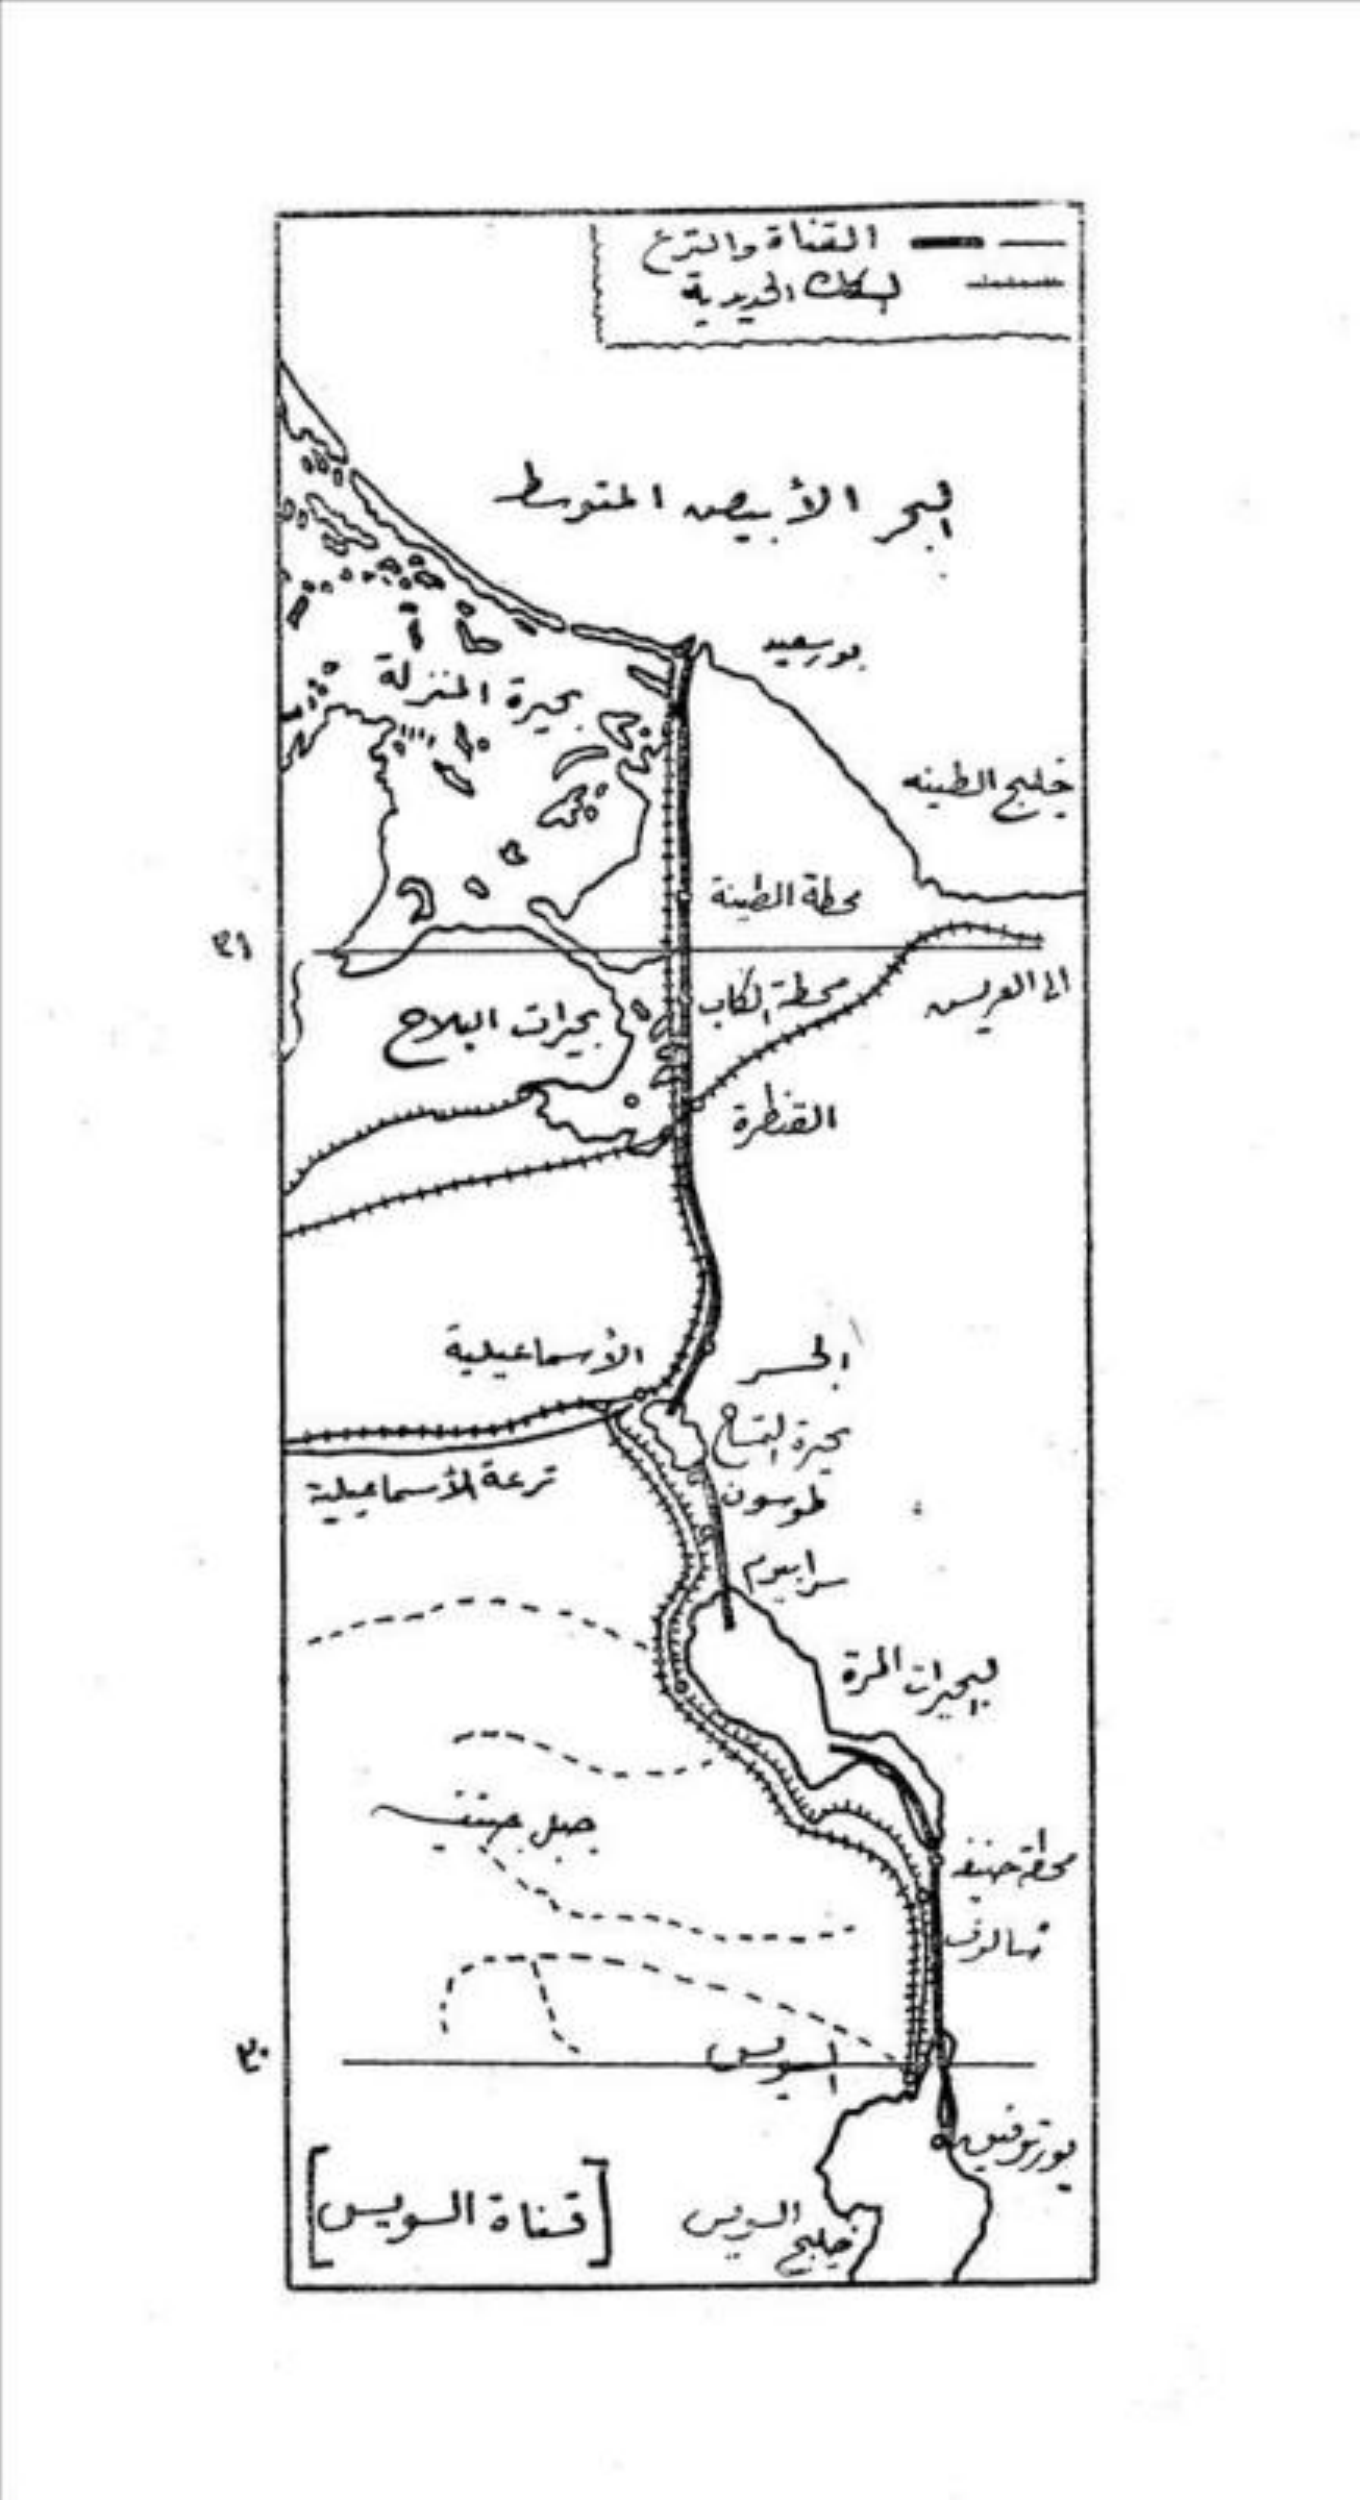 القناة والترع
السكك الحديدية
البحر الأبيض المتوسط
بورسعيد
بحيرة المنزلة
خليج الطينه
محطة الطينة
٣١
الى العريش
محطة الكاب
بحيرات البلاح
القنطرة
الأسماعيلية
الجسر
بحيرة التمساح
ترعة الأسماعيلية
طوسون
سرابيوم
البحيرات المرة
جبل جنيفه
محطة جنيفه
شالوف
السويس
٣٠
بورتوفيق
[قناة السويس]
خليج السويس